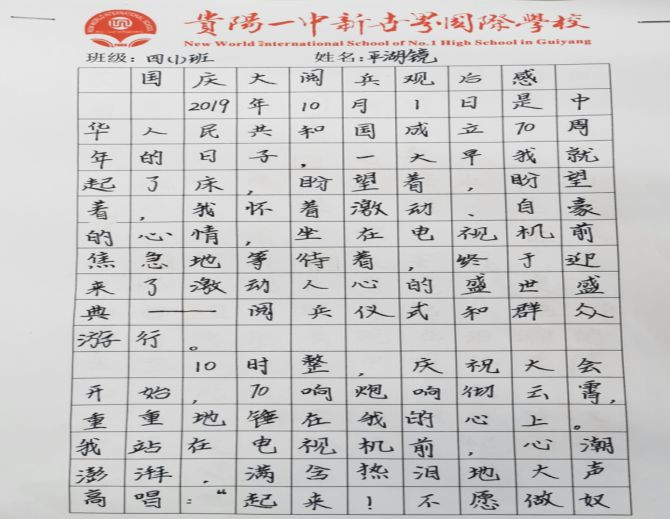 貴陽一中新世界國際學校
New World International School of No.1 High School in Guiyang
班级:四(1)班 姓名:平湖镜
国庆大阅兵观后感
2019年10月1日是中
华人民共和国成立70周
年的日子,一大早我就
起了床,盼望着,盼望
着,我怀着激动、自豪
的心情,坐在电视机前
焦急地等待着,终于迎
来了激动人心的盛世盛
典——阅兵仪式和群众
游行。
10时整,庆祝大会
开始,70响炮响彻云霄,
重重地锤在我的心上。
我站在电视机前,心潮
澎湃,满含热泪地大声
高唱:“起来!不愿做奴